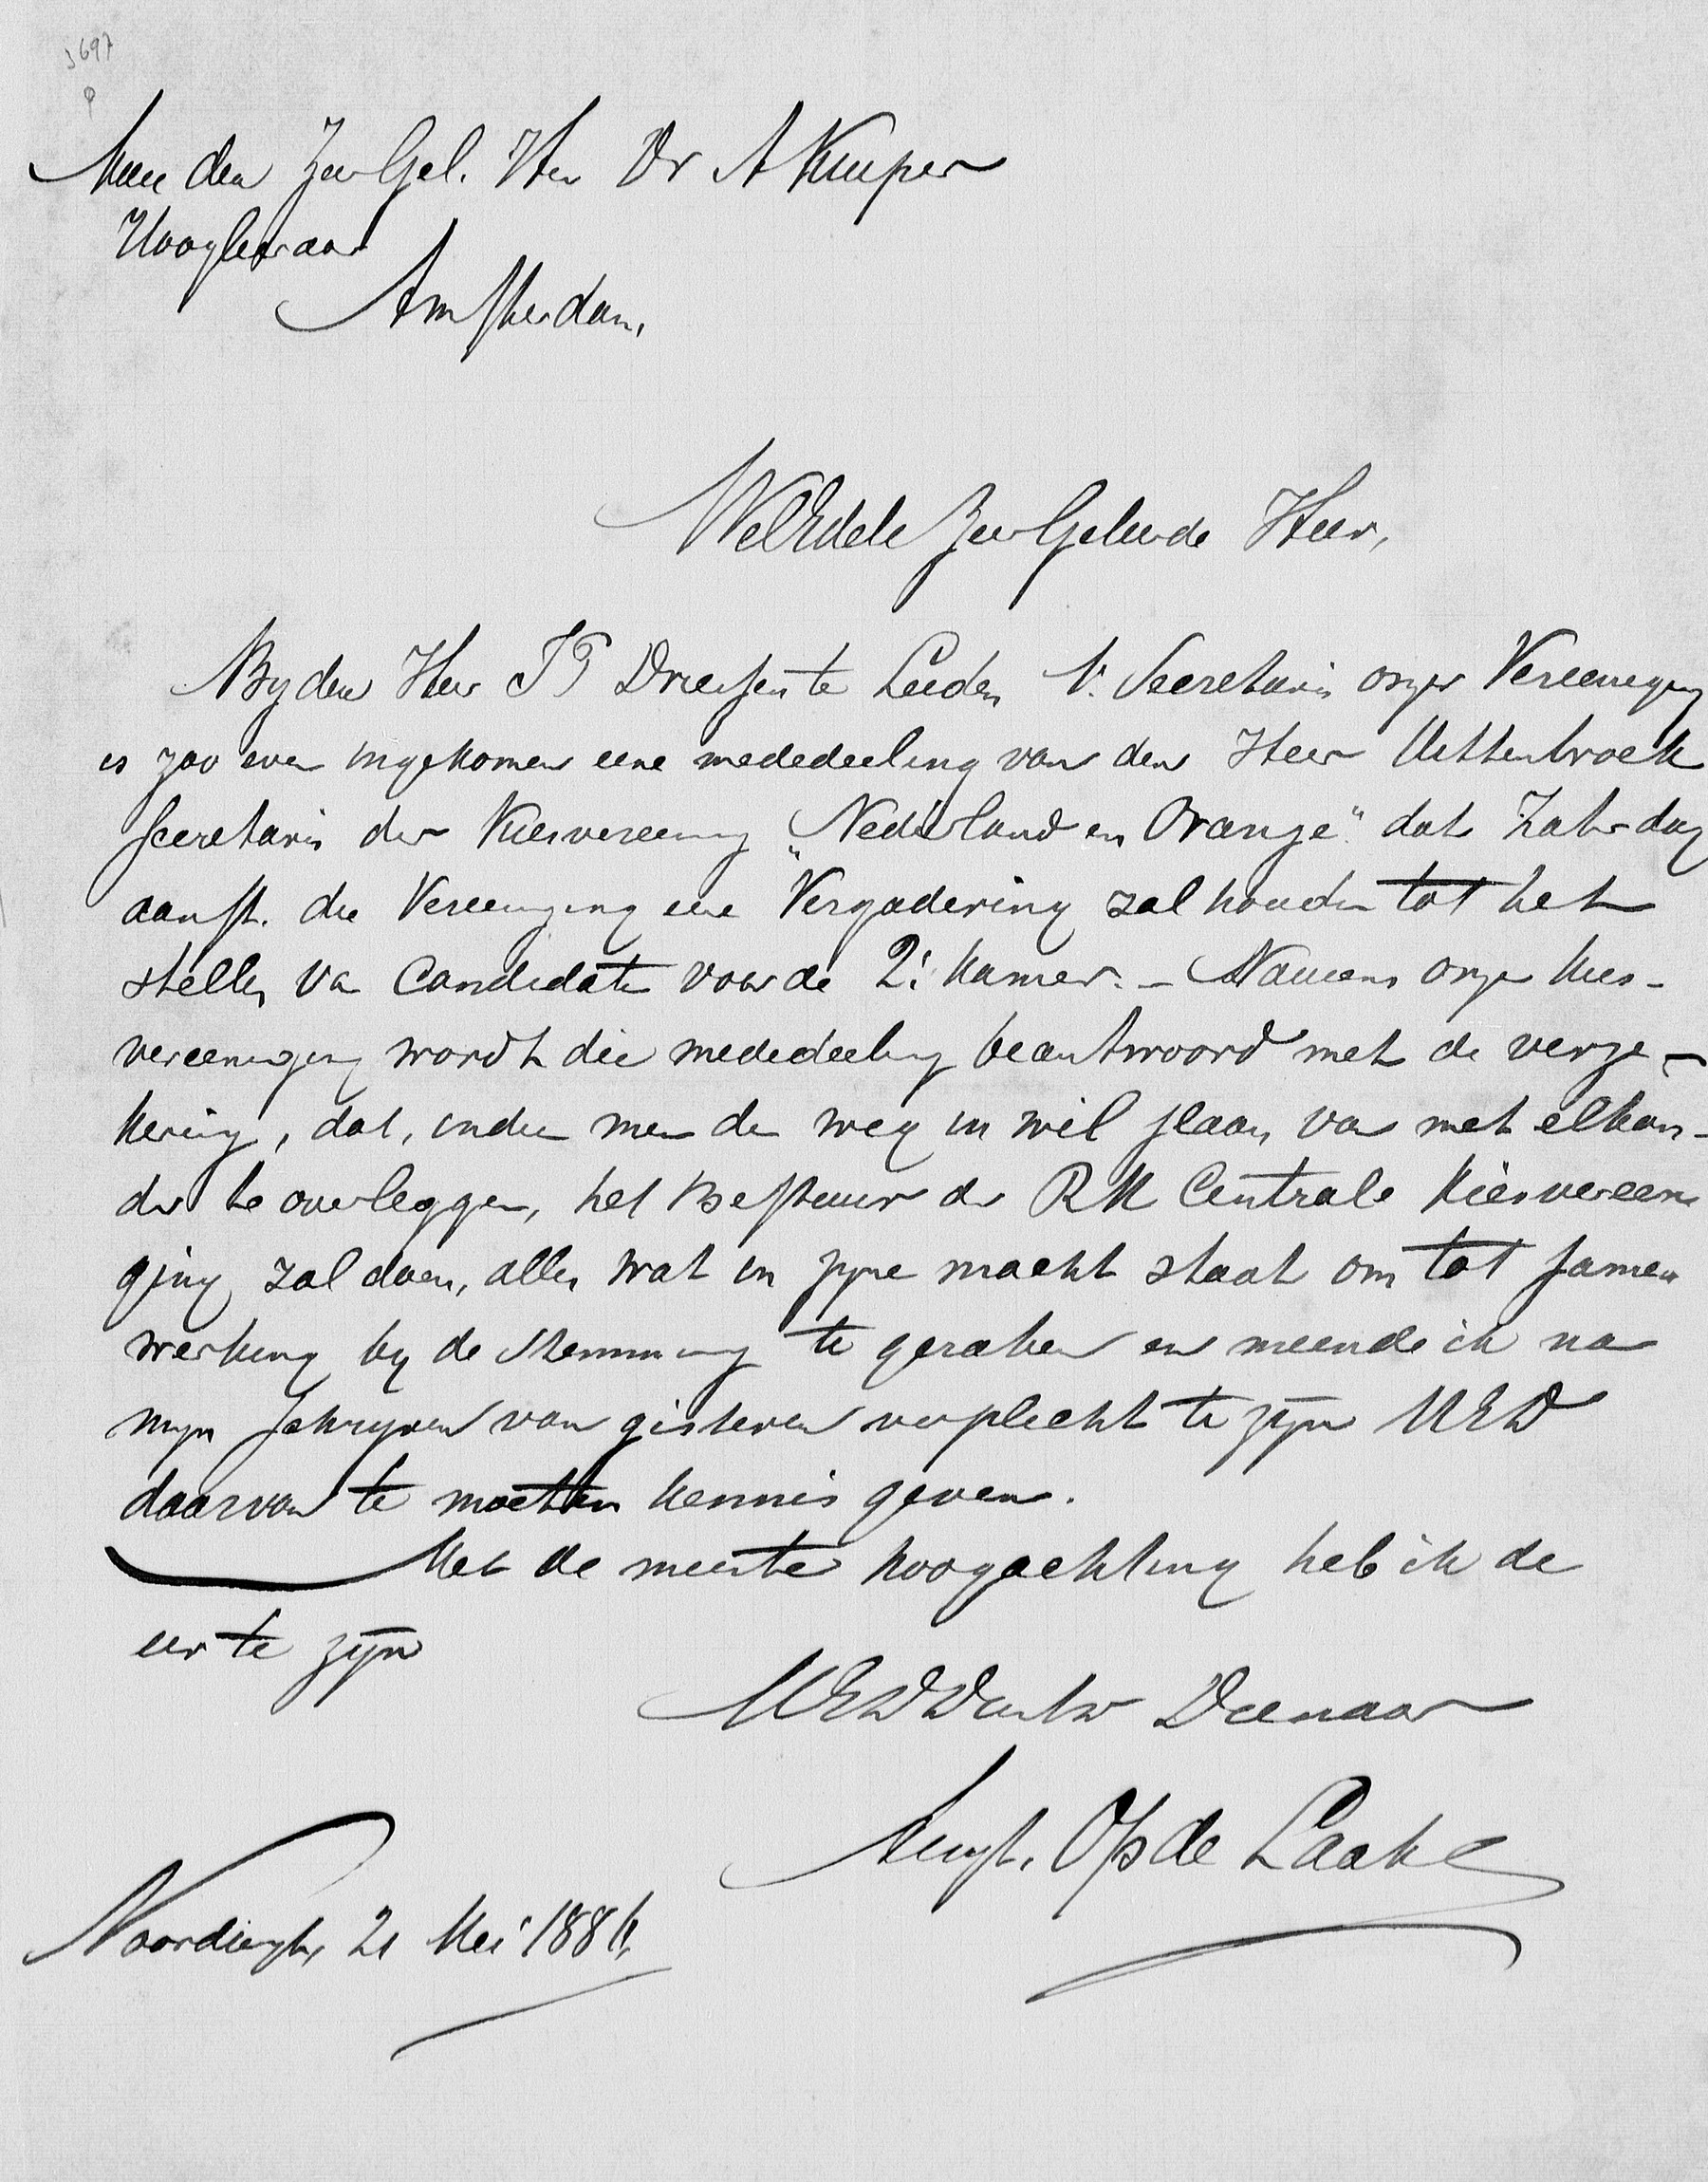 3697
Aan den ZeerGel. Heer Dr A Kuyper
Hoogleeraar
Amsterdam,
WelEdele ZeerGeleerde Heer,
By den Heer J P Driessen te Leiden 1e Secretaris onzer Vereeniging
is zoo even ingekomen eene mededeeling van den Heer Uittenbroek
Secretaris der Kiesvereenig „Nederland en Oranje" dat Zaterdag
aanst. die Vereeniging eene Vergadering zal houden tot het
stellen van Candidaten voor de 2e Kamer. - Namens onze Kies-
vereeniging wordt die mededeeling beantwoord met de verze-
kering, dat, indien men den weg in wil slaan van met elkan-
der te overleggen, het Bestuur der RK Centrale Kiesvereeni
ging zal doen, alles wat in zyne macht staat om tot samen
werking by de stemming te geraken en meende ik na
myn schryven van gisteren verplicht te zyn UED
daarvan te moeten kennis geven.
Met de meeste hoogachting heb ik de
eer te zyn
UEDD Dienaar
Aug. Op de Laak
21 Mei 188